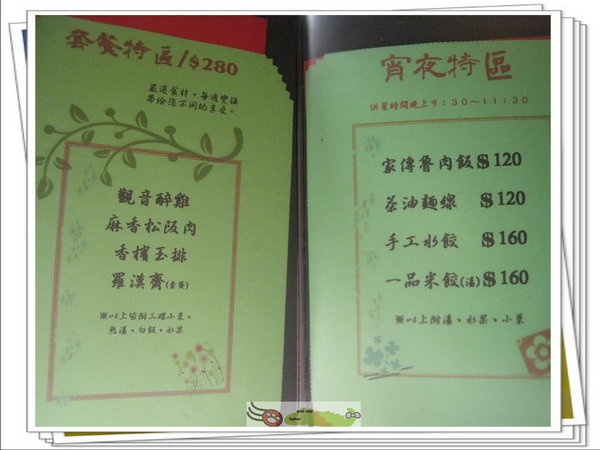 套餐特區/$280
嚴選食材，每週變換
帶給您不同的享受。
觀音醉雞
麻香松阪肉
香檳玉排
羅漢齋(素齋)
※以上皆附三碟小菜、
熱湯、白飯。水果
宵夜特區
供餐時間晚上9:30～11:30
家傳魯肉飯 $120
茶油麵線 $120
手工水餃 $160
一品米餃(湯) $160
※以上附湯、水果、小菜